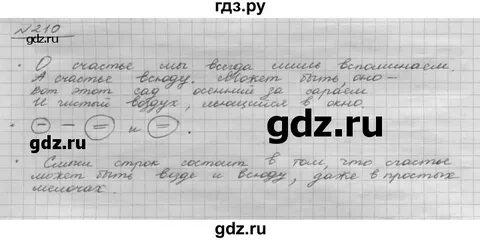 гдз.ру
№210
О счастье мы всегда лишь вспоминаем.
А счастье всюду. Может быть, оно –
Вот этот сад осенний за сараем
И чистый воздух, льющийся в окно.
gdz.ru
и
Смысл строк состоит в том, что счастье
может быть везде и всюду, даже в простых
мелочах.
gdz.ru